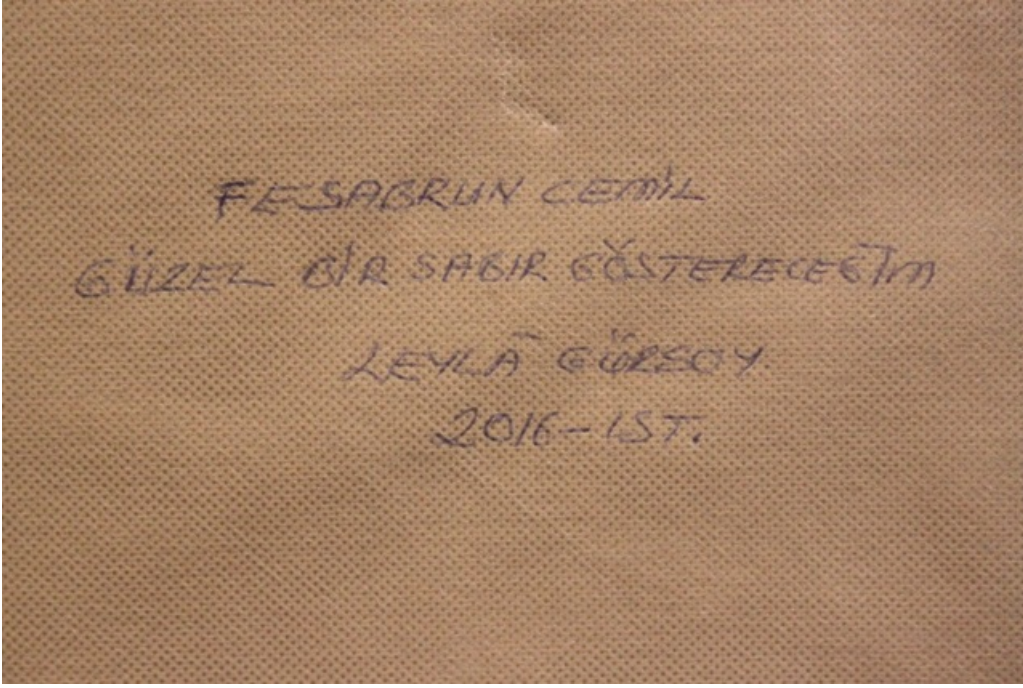 FESABRUN CEMİL
GÜZEL BİR SABIR GÖSTERECEĞİM
LEYLÂ GÜRSOY
2016-IST.